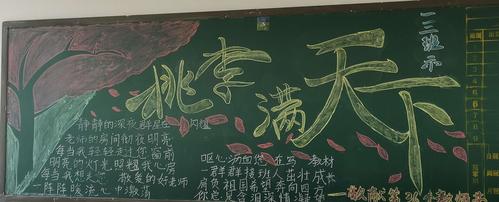 桃李满天下
一三班示
静静的深夜群星在闪耀
老师的房间彻夜明亮
每当我轻轻走过您窗前
明亮的灯光照耀我心房
每当我想起您 敬爱的好老师
一阵阵暖流心中激荡
呕心沥血您在写教材
一群群接班人茁壮成长
肩负祖国希望奔向四方
您总是含泪深情
献 第36个教师